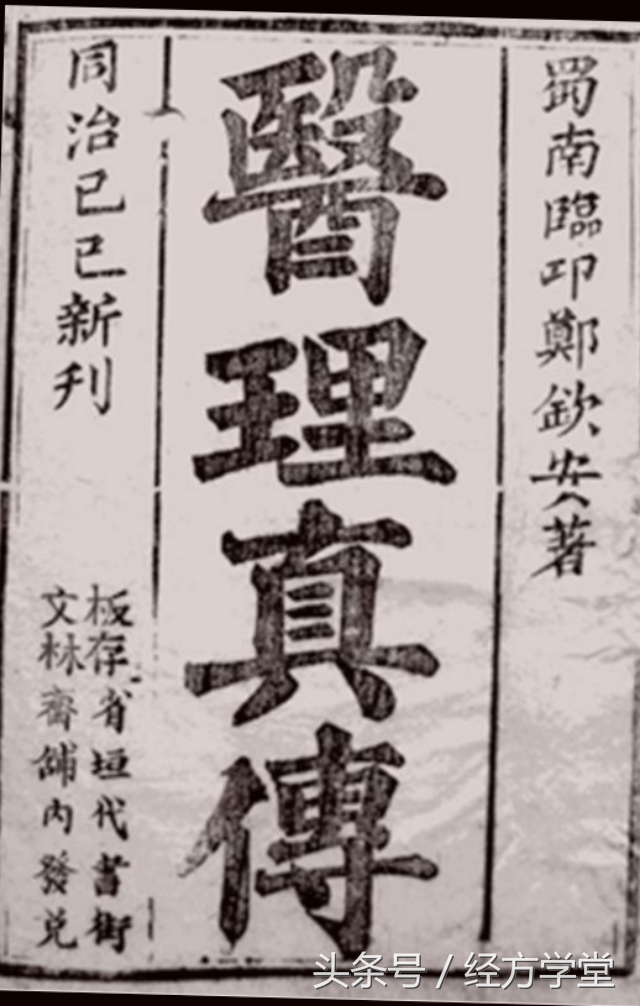 蜀南臨邛鄭欽安著
醫理真傳
同治己巳新刊
板存省垣代書街
文林齋舖內發兑
头条号 / 经方学堂